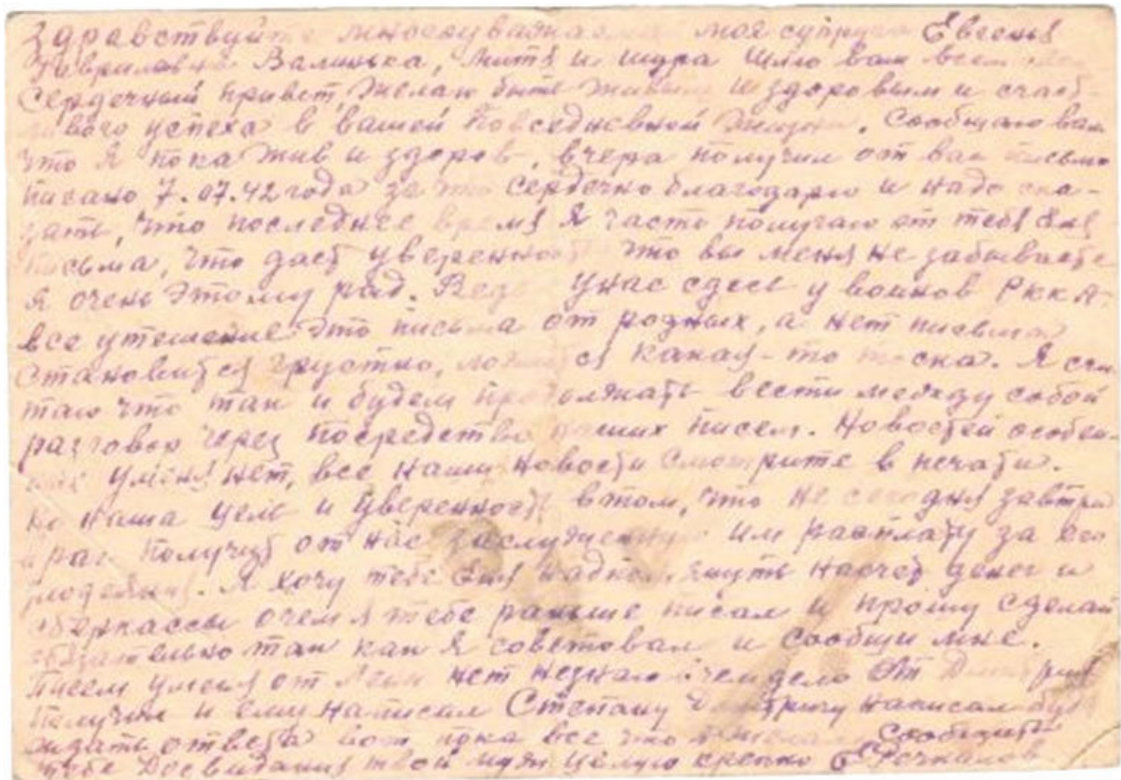 Здравствуйте многоуважаемая моя супруга Евгенья
Гавриловна Валинька, Митя и шура Шлю вам всем
Сердечный привет, Желаю быть живым и здоровым и счаст-
ливого успеха в вашей Повседневной Жизни. Сообщаю вам
что я пока жив и здоров, вчера получил от вас письмо
писано 7.07.42 года за что Сердечно благодарю и надо ска-
зать, что последнее время я часто получаю от тебя
письма, что дает уверенность что вы меня не забываете
я очень этому рад. Ведь у нас сдесь у воинов РККА
все утешение это письма от родных, а нет письма
Становится грустно, какая-то тоска. Я счи
таю что так и будем продолжать вести между собой
разговор через посредство наших писем. Новостей особен-
ных уменя нет, все наши новости Смотрите в печати.
Но наша цель и уверенность втом, что не сегодня завтра
враг получит от нас заслуженную им расплату за его
злодеяния. Я хочу тебе насчет денег и
сберкассы очем я тебе раньше писал и прошу сделай
обязательно так как я советовал и сообщи мне.
Писем уменя от нет незнаю вчем дело От Дмитрия
Получил и ему написал Степану Дмитричу написал буду
ждать ответа вот пока все что Сообщить
тебе Досвидания твой муж целую крепко